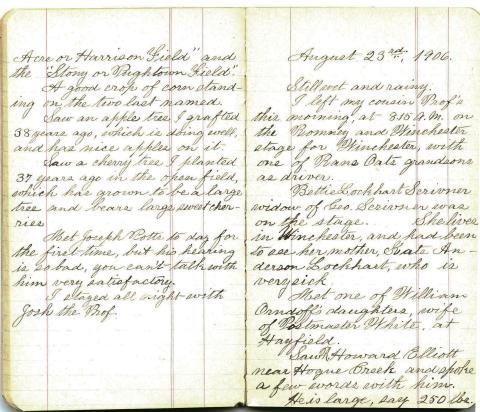 Acre or Harrison Field" and
the "Stony or Pughtown Field".
A good crop of corn stand-
ing on the two last named.
Saw an apple tree I grafted
38 years ago, which is doing well,
and has nice apples on it.
Saw a cherry tree I planted
37 years ago in the open field,
which has grown to be a large
tree and bears large sweet cher-
ries
Met Joseph Potts to day for
the first time, but his hearing
is so bad, you can't talk with
him very satisfactory.
I staged all night with
Josh the Prof.
August 23rd, 1906.
Still wet and rainy.
I left my cousin Prof's
this morning at 8:15 A.M. on
the Romney and Winchester
stage for Winchester, with
one of Oats grandsons
as driver.
Bettie Lockhart Scrivner
widow of Geo. Scrivner was
on the stage. She lives
in Winchester, and had been
to see her mother, Kate An-
derson Lockhart, who is
very sick.
Met one of William
Orndoff's daughters, wife
of Postmaster White, at
Hayfield.
Saw Howard Elliott
near Hogue Creek and spoke
a few words with him.
He is large, say 250 lbs.